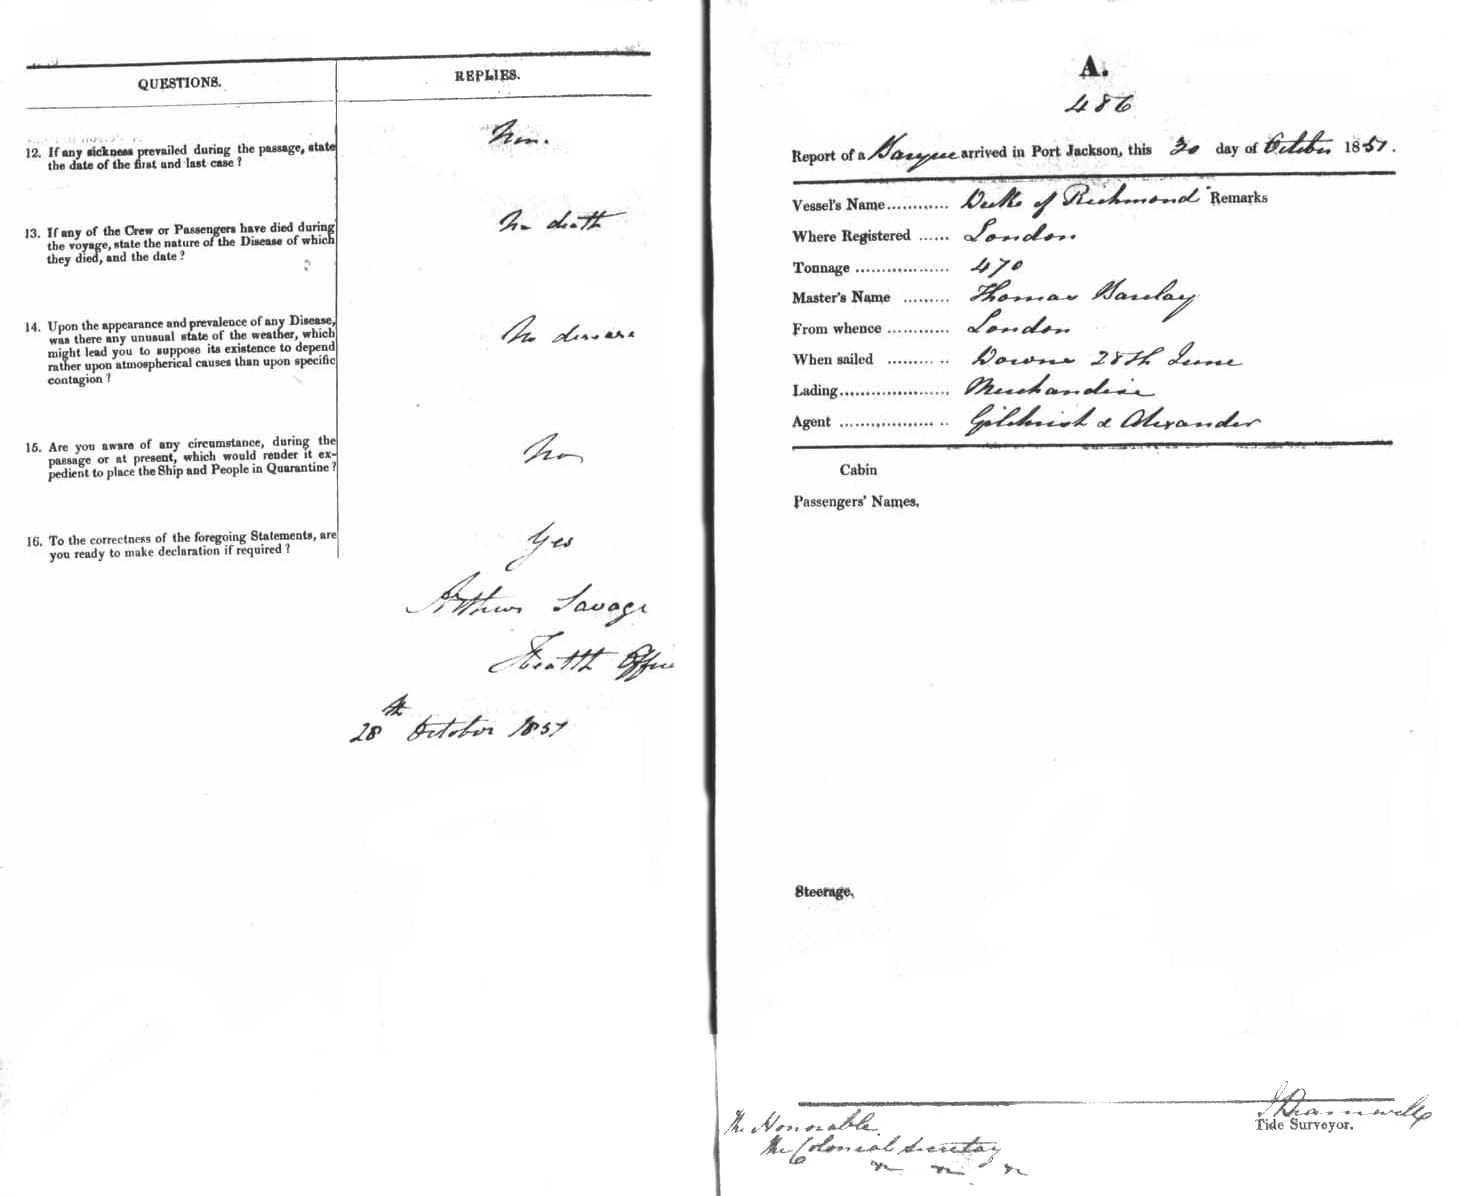 QUESTIONS.
REPLIES.
12. If any sickness prevailed during the passage, state
the date of the first and last case ?
13. If any of the Crew or Passengers have died during
the voyage, state the nature of the Disease of which
they died, and the date ?
No death
14. Upon the appearance and prevalence of any Disease,
was there any unusual state of the weather, which
might lead you to suppose its existence to depend
rather upon atmospherical causes than upon specific
contagion ?
No disease
15. Are you aware of any circumstance, during the
passage or at present, which would render it ex-
pedient to place the Ship and People in Quarantine ?
No
16. To the correctness of the foregoing Statements, are
you ready to make declaration if required ?
Yes
Arthur Savage
Health Officer
28th October 1851
A.
486
Report of a Barque arrived in Port Jackson, this 30 day of October 1851.
Vessel's Name............ Duke of Richmond Remarks
Where Registered ...... London
Tonnage .................. 470
Master's Name ......... Thomas Barclay
From whence ............ London
When sailed ......... .. Downs 28th June
Lading..................... Merchandise
Agent .................. .. Gilchrist & Alexander
Cabin
Passengers' Names,
Steerage,
The Honorable
The Colonial Secretary
Bramwell
Tide Surveyor.